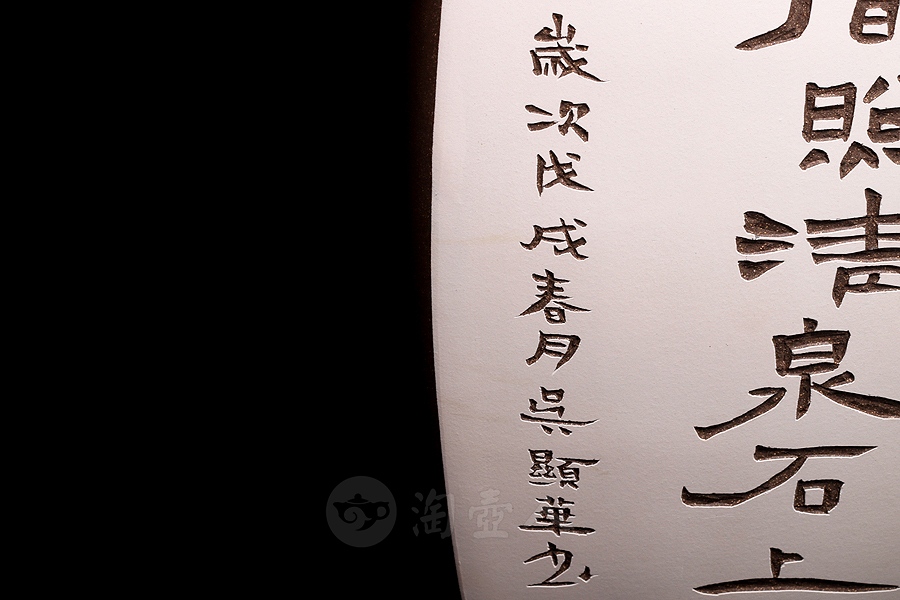 照清泉石上
歲次戊戌春月吳顯華书
淘壺